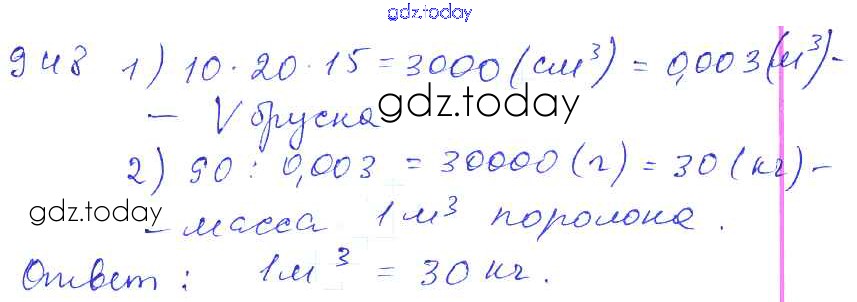 gdz.today
948 1) 10·20·15 = 3000 (см³) = 0,003 (м³) -
- V бруска
gdz.today
2) 90 : 0,003 = 30000 (г) = 30 (кг) -
gdz.today
- масса 1 м³ поролона.
Ответ: 1 м³ = 30 кг.